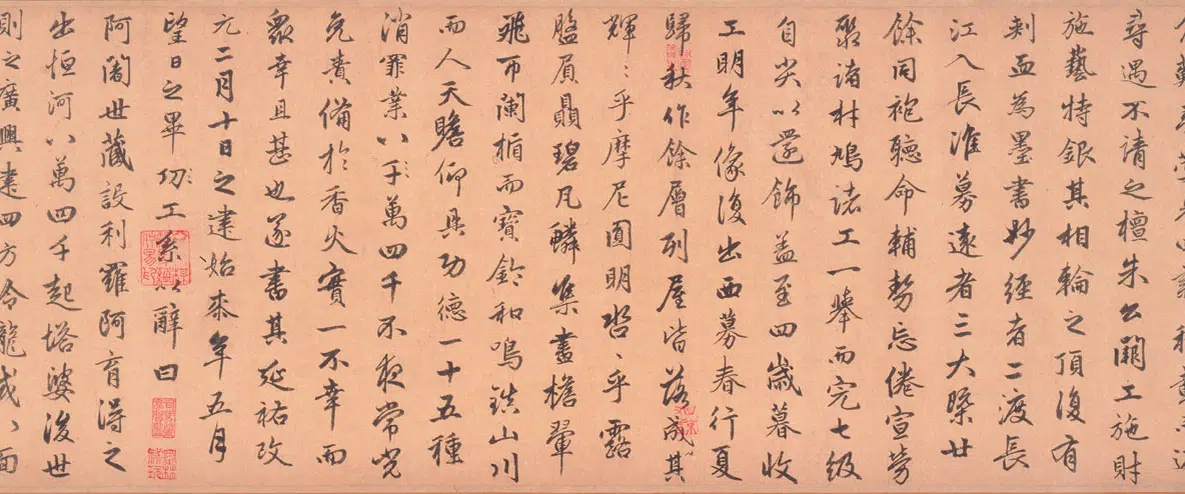 尋遇不請之檀朱公開工施財
施藝特銀其相輪之頂復有
刺血為墨書妙經者二渡長
江入長淮募遠者三大檗廿
餘同袍聽命輔勢忘倦宣勞
聚諸材鳩諸工一舉而完七級
自尖以還飾蓋至四歲暮收
工明年像復出西募春行夏
歸秋作餘層列屋皆落成其
輝〻乎摩尼圓明岧〻乎露
盤眉贔碧瓦鱗集畫檐翬
飛而闌楯而寶鈴和鳴鎮山川
而人天瞻仰具功德一十五種
消罪業八万四千不夜常光
免責備於香火實一不幸而
眾幸且甚也遂書其延祐改
元二月十日之建始來年五月
望日之畢功工系以辭曰
阿闍世藏設利羅阿育得之
出恒河八萬四千起塔婆後世
則之廣興建四方令龍戒〻面